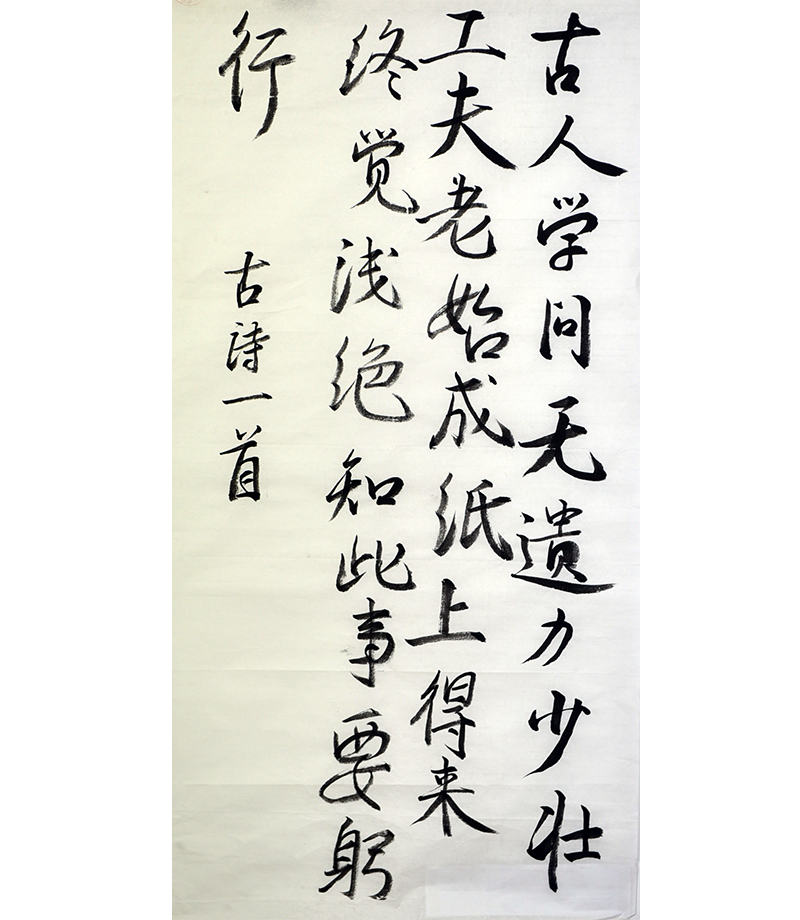 古人学问无遗力少壮
工夫老始成纸上得来
终觉浅绝知此事要躬
行
古诗一首